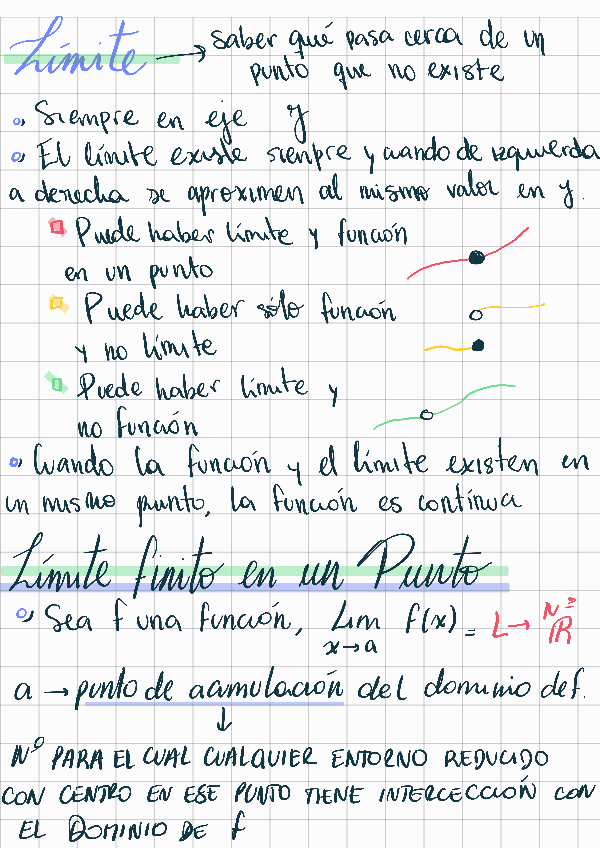 Límite → saber qué pasa cerca de un
punto que no existe
Siempre en eje y
El límite existe siempre y cuando de izquierda
a derecha se aproximen al mismo valor en y.
Puede haber límite y función
en un punto
Puede haber sólo función
y no límite
Puede haber límite y
no función
Cuando la función y el límite existen en
un mismo punto, la función es continua
Límite finito en un Punto
Sea f una función, Lim f(x) = L → Nº
x→a ℝ
a → punto de acumulación del dominio de f.
↓
Nº PARA EL CUAL CUALQUIER ENTORNO REDUCIDO
CON CENTRO EN ESE PUNTO TIENE INTERCECCIÓN CON
EL DOMINIO DE f